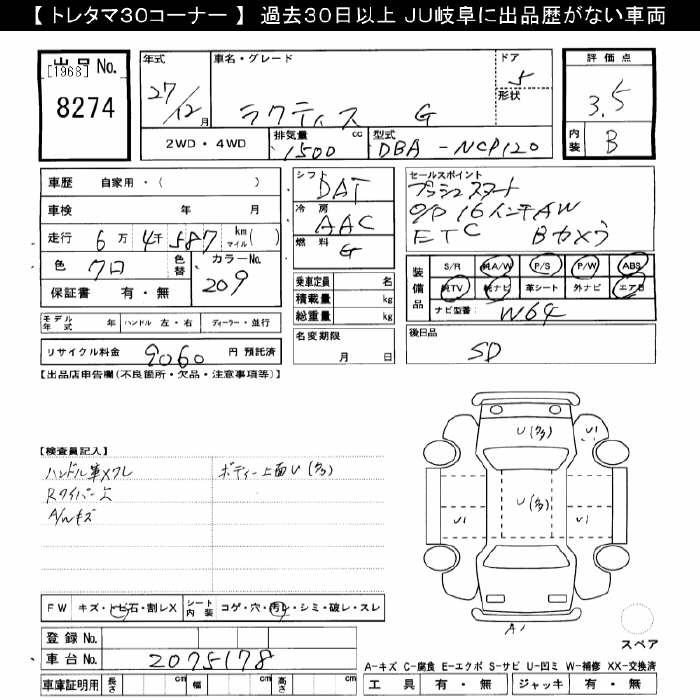 【 トレタマ30コーナー 】 過去30日以上 JU岐阜に出品歴がない車両
出品 No.
[1968]
8274
年式
27/12月
車名・グレード
ラクティス G
ドア
5
形状
2WD・4WD
排気量
1500 cc
型式
DBA - NCP120
評価点
3.5
内装
B
車歴 自家用・( )
車検 年 月
走行 6万 4千 587 km マイル( )
色 クロ
色替
カラーNo.
209
保証書 有・無
モデル年式 年
ハンドル 左・右
ディーラー・並行
リサイクル料金 9060 円 預託済
シフト
DAT
冷房
AAC
燃料
G
乗車定員 名
積載量 kg
総重量 kg
名変期限
月 日
セールスポイント
プッシュスタート
O/P 16インチAW
ETC Bカメラ
装備品
S/R 純A/W P/S P/W ABS
純TV 純ナビ 革シート 外ナビ エアB
ナビ型番 W64
後日品
SD
【出品店申告欄(不良箇所・欠品・注意事項等)】
【検査員記入】
ハンドル革スレ
ボディー上面U(多)
Rワイパー欠
A/Wキズ
U(多)
U1
U(多)
U1
U1
A1
スペア
FW キズ・トビ石・割レX
シート内装 コゲ・穴・汚レ・シミ・破レ・スレ
登録 No.
車台 No. 2075178
車庫証明用 長さ cm 幅 cm 高さ cm
A-キズ C-腐食 E-エクボ S-サビ U-凹ミ W-補修 XX-交換済
工具 有・無 ジャッキ 有・無